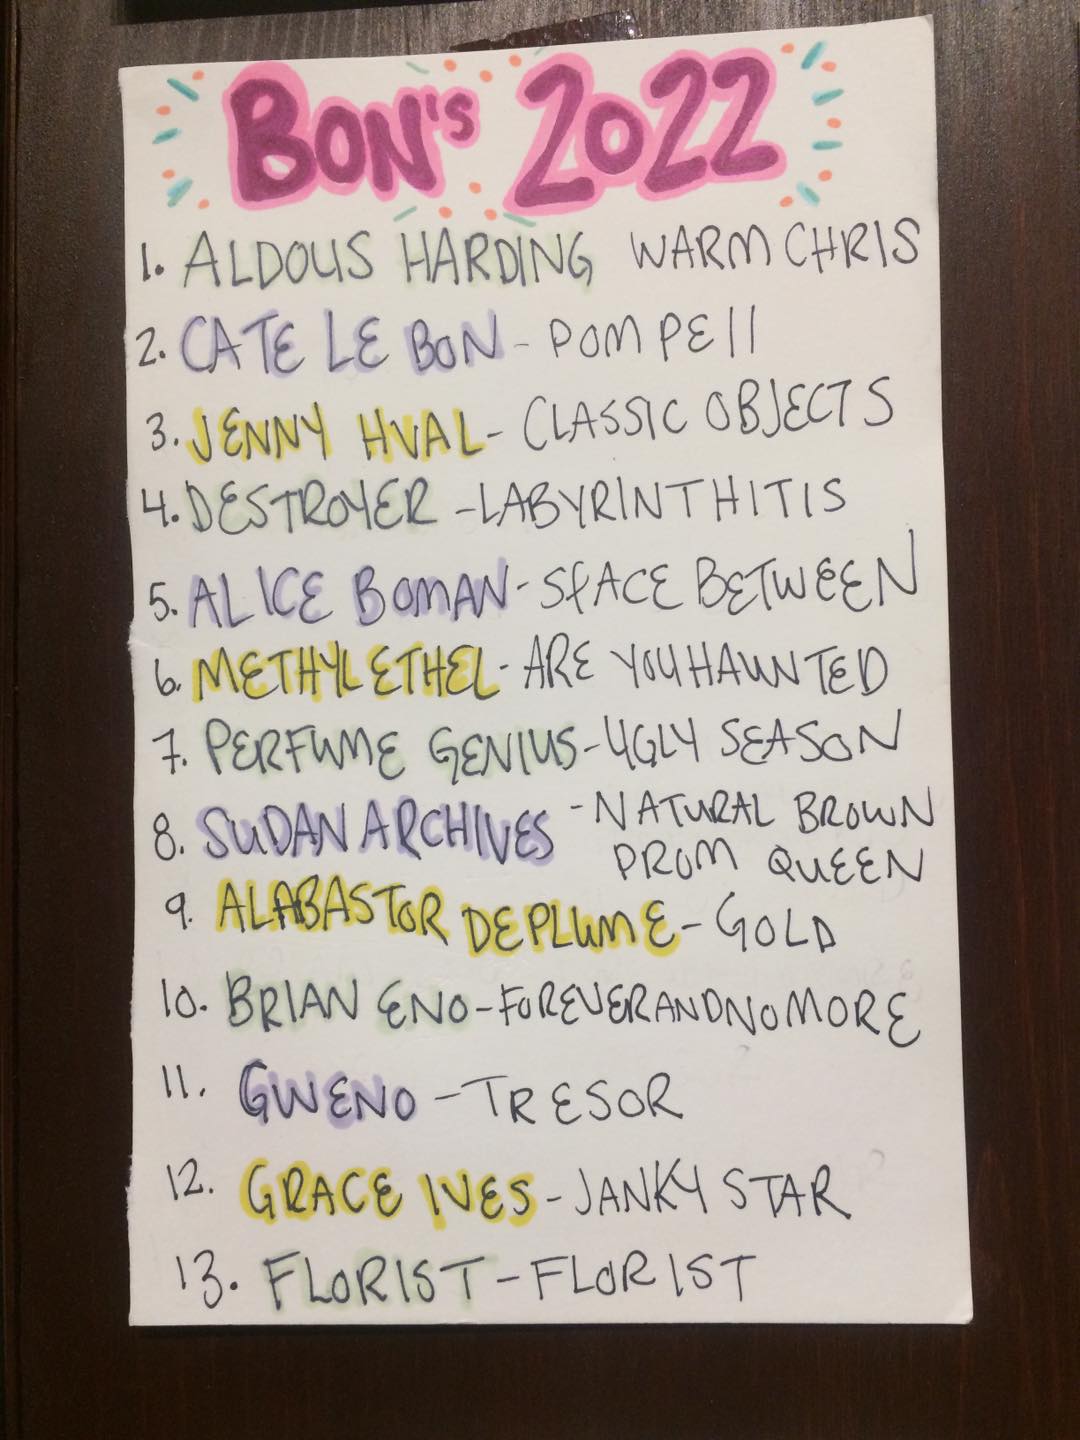 BON'S 2022
1. ALDOUS HARDING WARM CHRIS
2. CATE LE BON - POMPEII
3. JENNY HVAL - CLASSIC OBJECTS
4. DESTROYER - LABYRINTHITIS
5. ALICE BOMAN - SPACE BETWEEN
6. METHYL ETHEL - ARE YOU HAUNTED
7. PERFUME GENIUS - UGLY SEASON
8. SUDAN ARCHIVES - NATURAL BROWN
PROM QUEEN
9. ALABASTOR DEPLUME - GOLD
10. BRIAN ENO - FOREVERANDNOMORE
11. GWENO - TRESOR
12. GRACE IVES - JANKY STAR
13. FLORIST - FLORIST